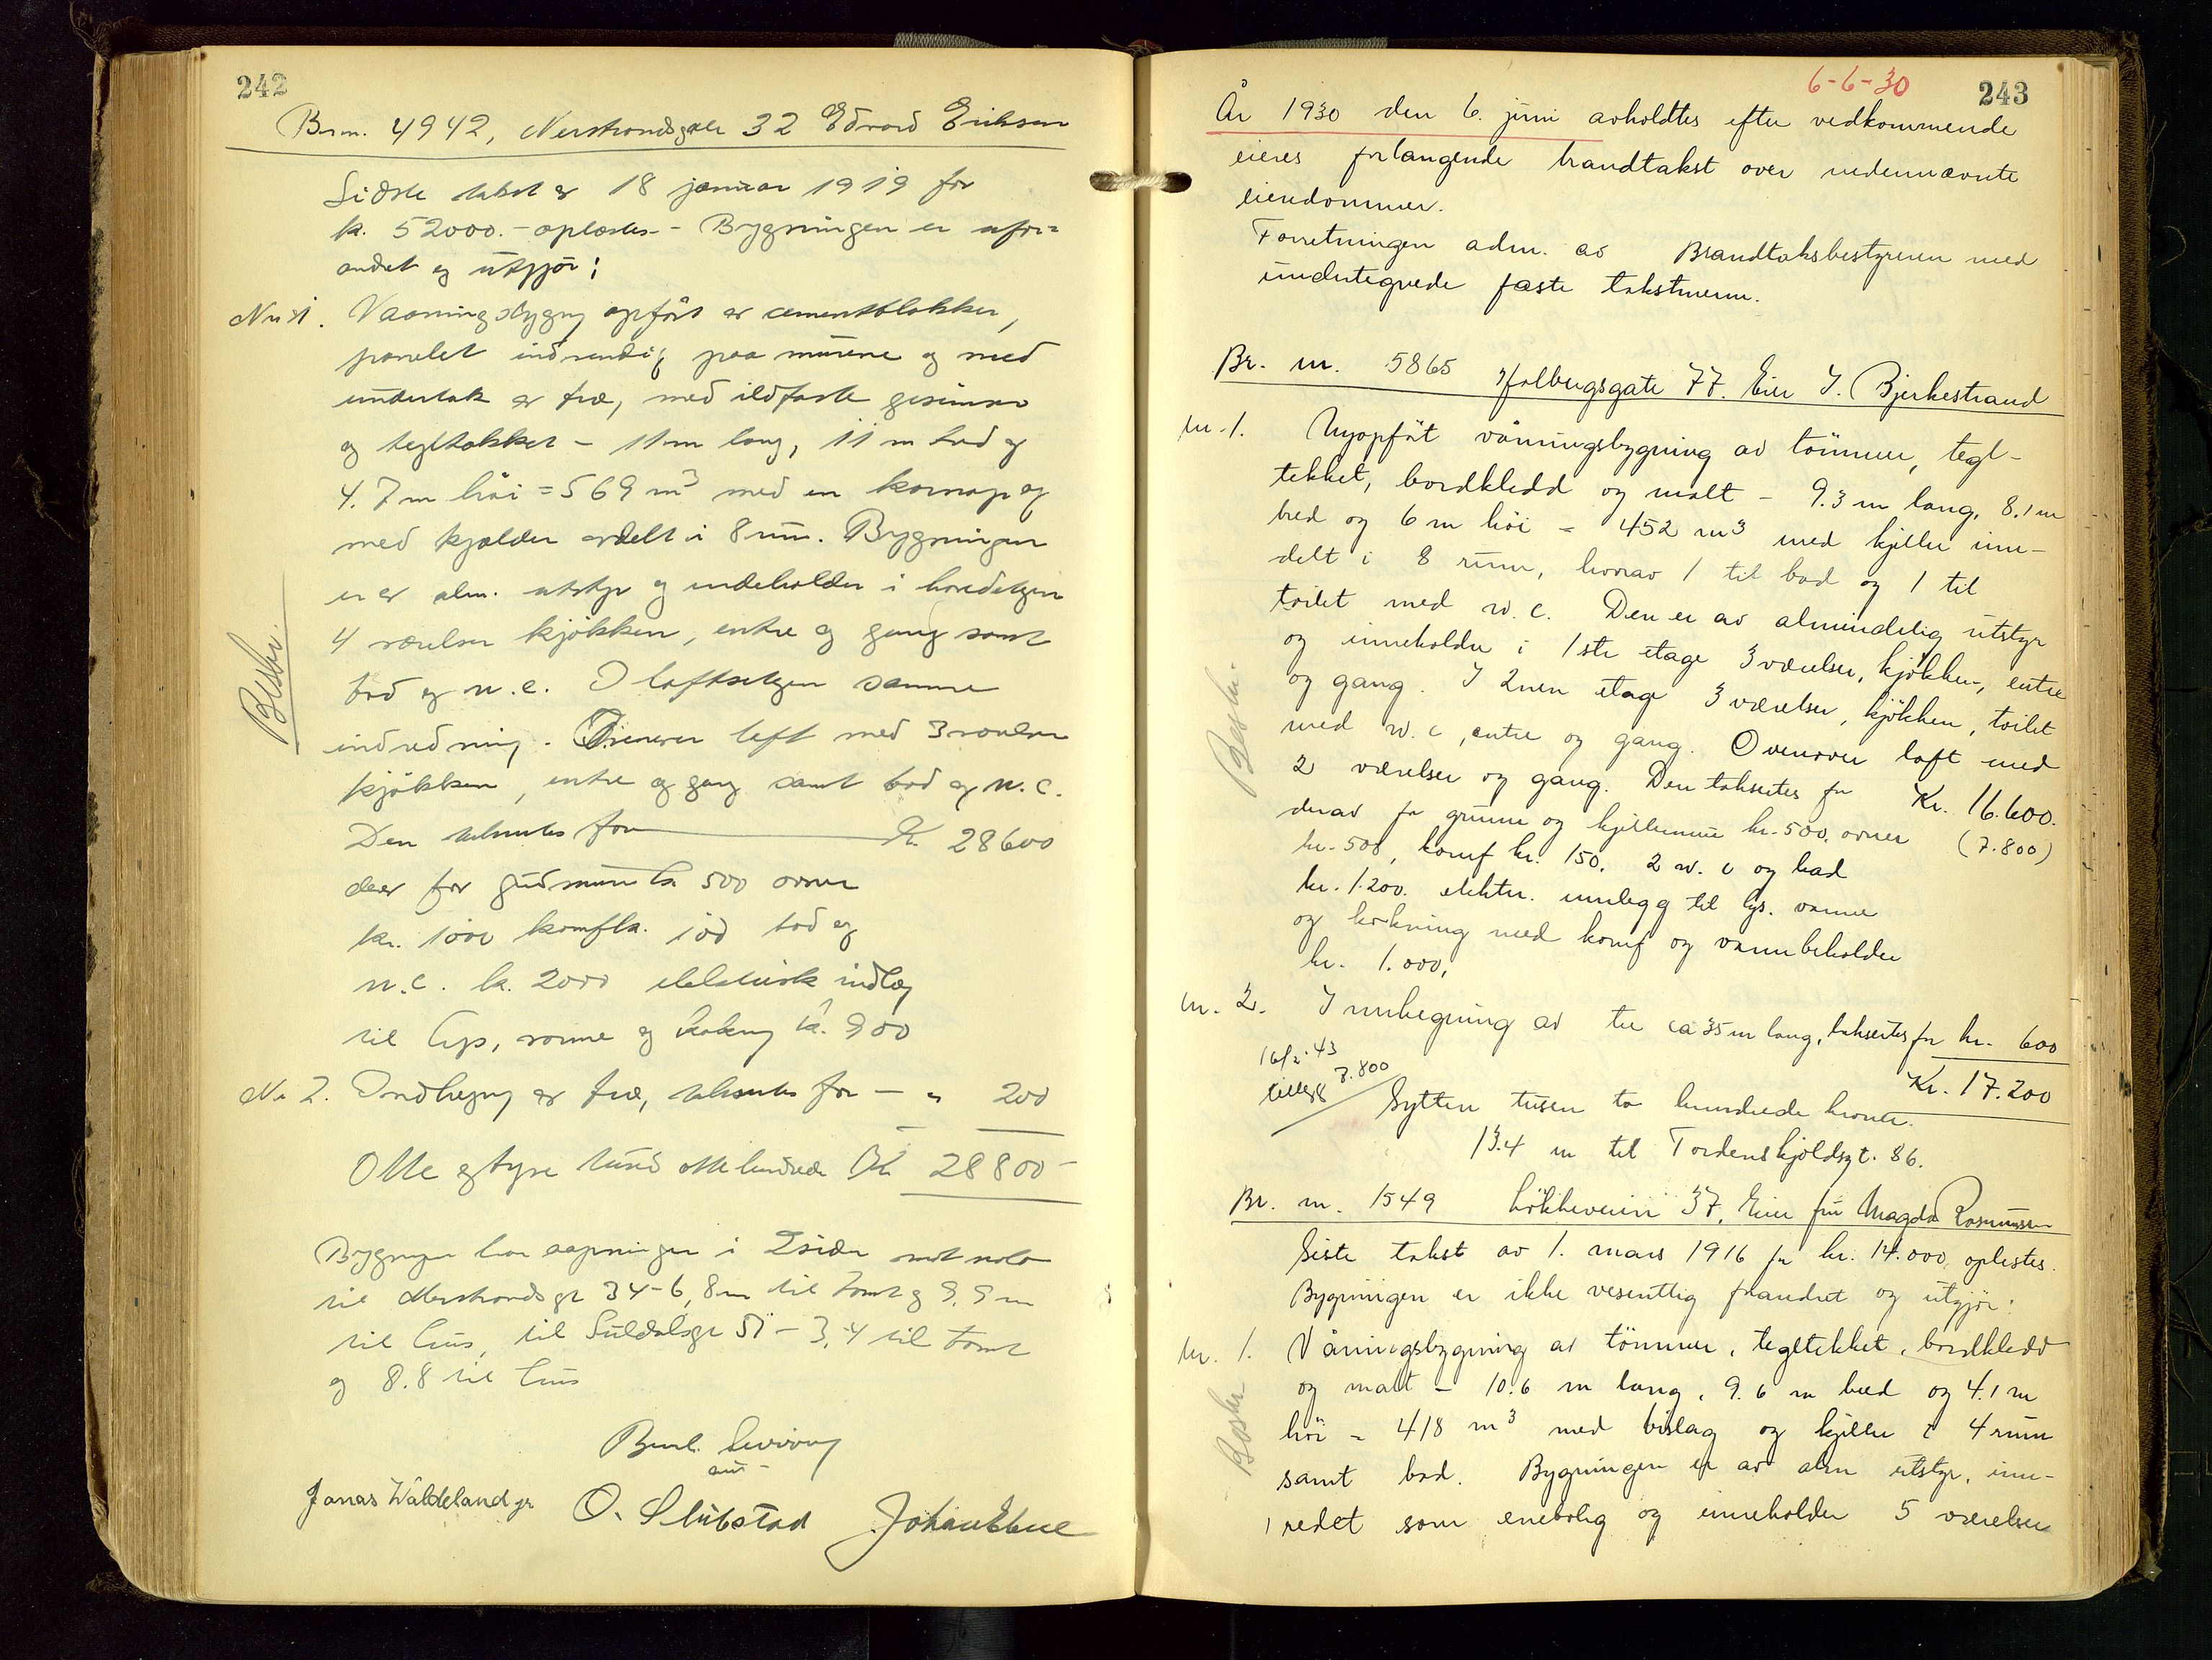 242
Br.nr. 4942, Nerstrandsgate 32 Edvard Eriksen
Sidste takst er 18 januar 1919 for
kr. 52000.- oplæstes - Bygningen er ufor=
andret og utgjør:
No 1. Vaaningsbygng opført av cementblokker,
panelet indvendig paa murene og med
undertak av træ, med ildfaste gesimser
og tegltækket - 11 m lang, 11 m bred og
4.7 m høi = 569 m3 med en karnap og
med kjælder avdelt i 8 rum. Bygningen
er av alm. utstyr og indeholder i hovedetagen
4 værelser kjøkken, entre og gang samt
bad og w.c. I loftsetagen samme
indredning. Derover loft med 3 værelser
kjøkken, entre og gang samt bad og w.c.
Beskr.
Den takseres for Kr. 28600
derav for grundmure kr. 500 ovner
kr. 1000 komf kr. 100 bad og
w.c. kr. 2000 elektrisk indlæg
til lys, varme og kokning kr. 900
No 2. Indhegng av træ, takseres for - " 200
Otte og tyve tusind otte hundrede Kr 28800-
Bygningen har aapninger i 2 sider mot nabo
til Nerstrandsgt 34 - 6,8 m til tomt og 9,9 m
til hus, til Suldalsgt 51 - 3,4 til tomt
og 8.8 til hus
Jonas Waldeland jr O. Slubstad
6-6-30
243
År 1930 den 6. juni avholdtes efter vedkommende
eieres forlangende brandtakst over nedennævnte
eiendommer.
Forretningen adm. av Brandtakstbestyreren med
undertegnede faste takstmenn.
Br. nr. 5865 Holbergsgate 77. Eier I. Bjerkestrand
nr. 1. Nyopført våningsbygning av tømmer, tegl-
tekket, bordkledd og malt - 9.3 m lang, 8.1 m
bred og 6 m høi = 452 m3 med kjeller inn-
delt i 8 rum, hvorav 1 til bad og 1 til
toilet med w.c. Den er av almindelig utstyr
og inneholder i 1ste etage 3 værelser, kjøkken, entre
og gang. I 2nen etage 3 værelser, kjøkken, toilet
med w.c, entre og gang. Ovenover loft med
2 værelser og gang. Den takseres for Kr. 16.600.
Beskr.
derav for grunn og kjellermur kr. 500, ovner (7.800)
kr. 500, komf kr. 150, 2 w.c og bad
kr. 1.200. elektr. innlegg til lys. varme
og kokning med komf og vannbeholder
kr. 1.000,
nr. 2. Innhegning av tre ca 35 m lang, takseres for kr. 600
Kr. 17.200
16/2-43
tillegg 7.800
Sytten tusen to hundrede kroner.
13.4 m til Tordenskjoldsgt. 86.
Br. nr. 1549 Løkkeveien 37, Eier fru Magda Rasmussen
Siste takst av 1. mars 1916 for kr. 14.000, oplestes.
Bygningen er ikke vesentlig forandret og utgjør:
nr. 1. Våningsbygning av tømmer, tegltekket, bordkledd
og malt - 10.6 m lang, 9.6 m bred og 4.1 m
høi = 418 m3 med bislag og kjeller i 4 rum
samt bad. Bygningen er av alm utstyr, inn-
redet som enebolig og inneholder 5 værelser
Beskr